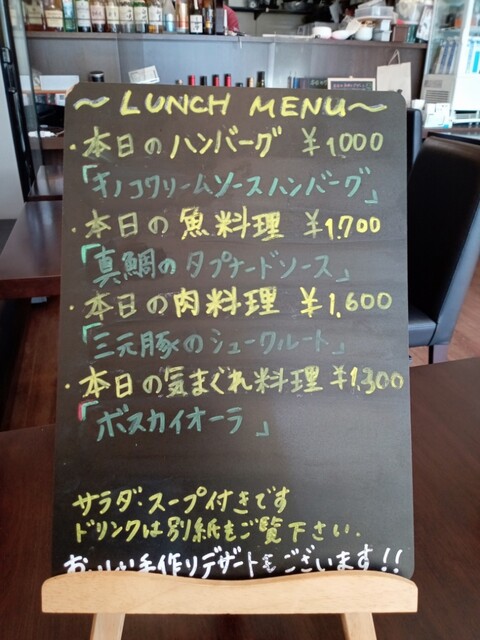 ～ LUNCH MENU～
・本日のハンバーグ ￥1000
「キノコクリームソースハンバーグ」
・本日の魚料理 ￥1.700
「真鯛のタプナードソース」
・本日の肉料理 ￥1,600
「三元豚のシュークルート」
・本日の気まぐれ料理 ￥1,300
「ボスカイオーラ 」
サラダ・スープ付きです
ドリンクは別紙もご覧下さい.
おいしい手作りデザートもございます!!